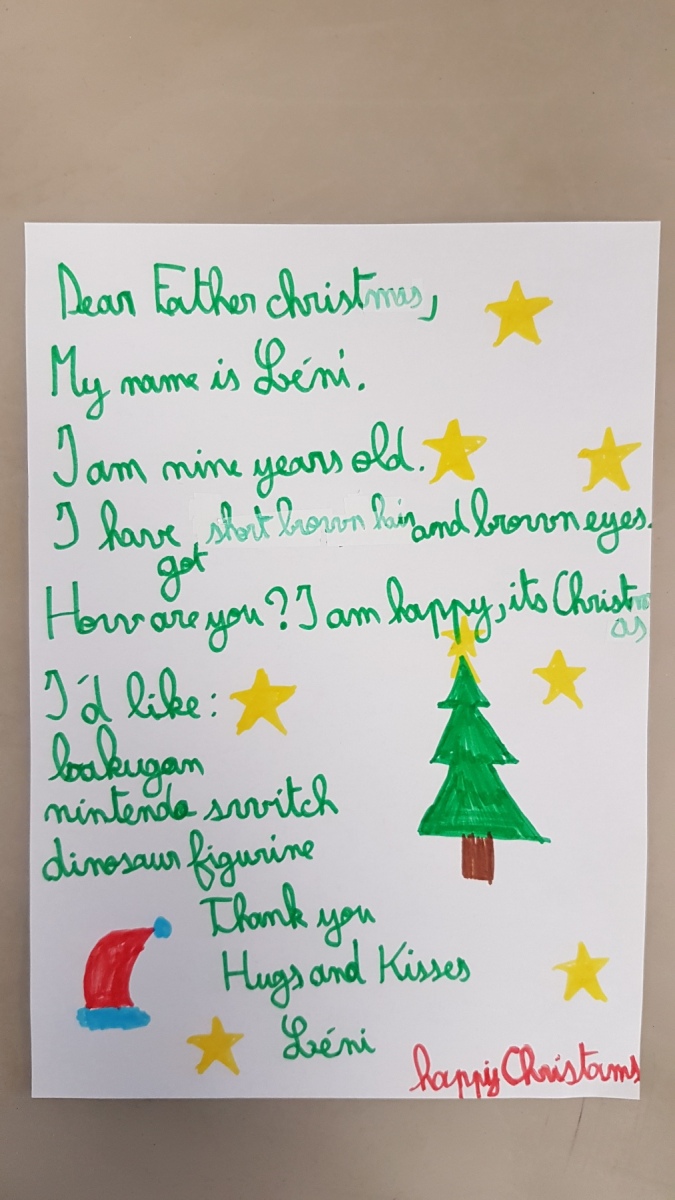 Dear Father christmas,
My name is Léni.
I am nine years old.
I have got short brown hair and brown eyes.
How are you? I am happy, its Christmas
I'd like:
bakugan
nintendo switch
dinosaur figurine
Thank you
Hugs and Kisses
Léni
happy Christams